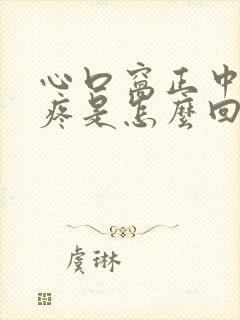 心口窩正中
疼是怎麼回
虞琳